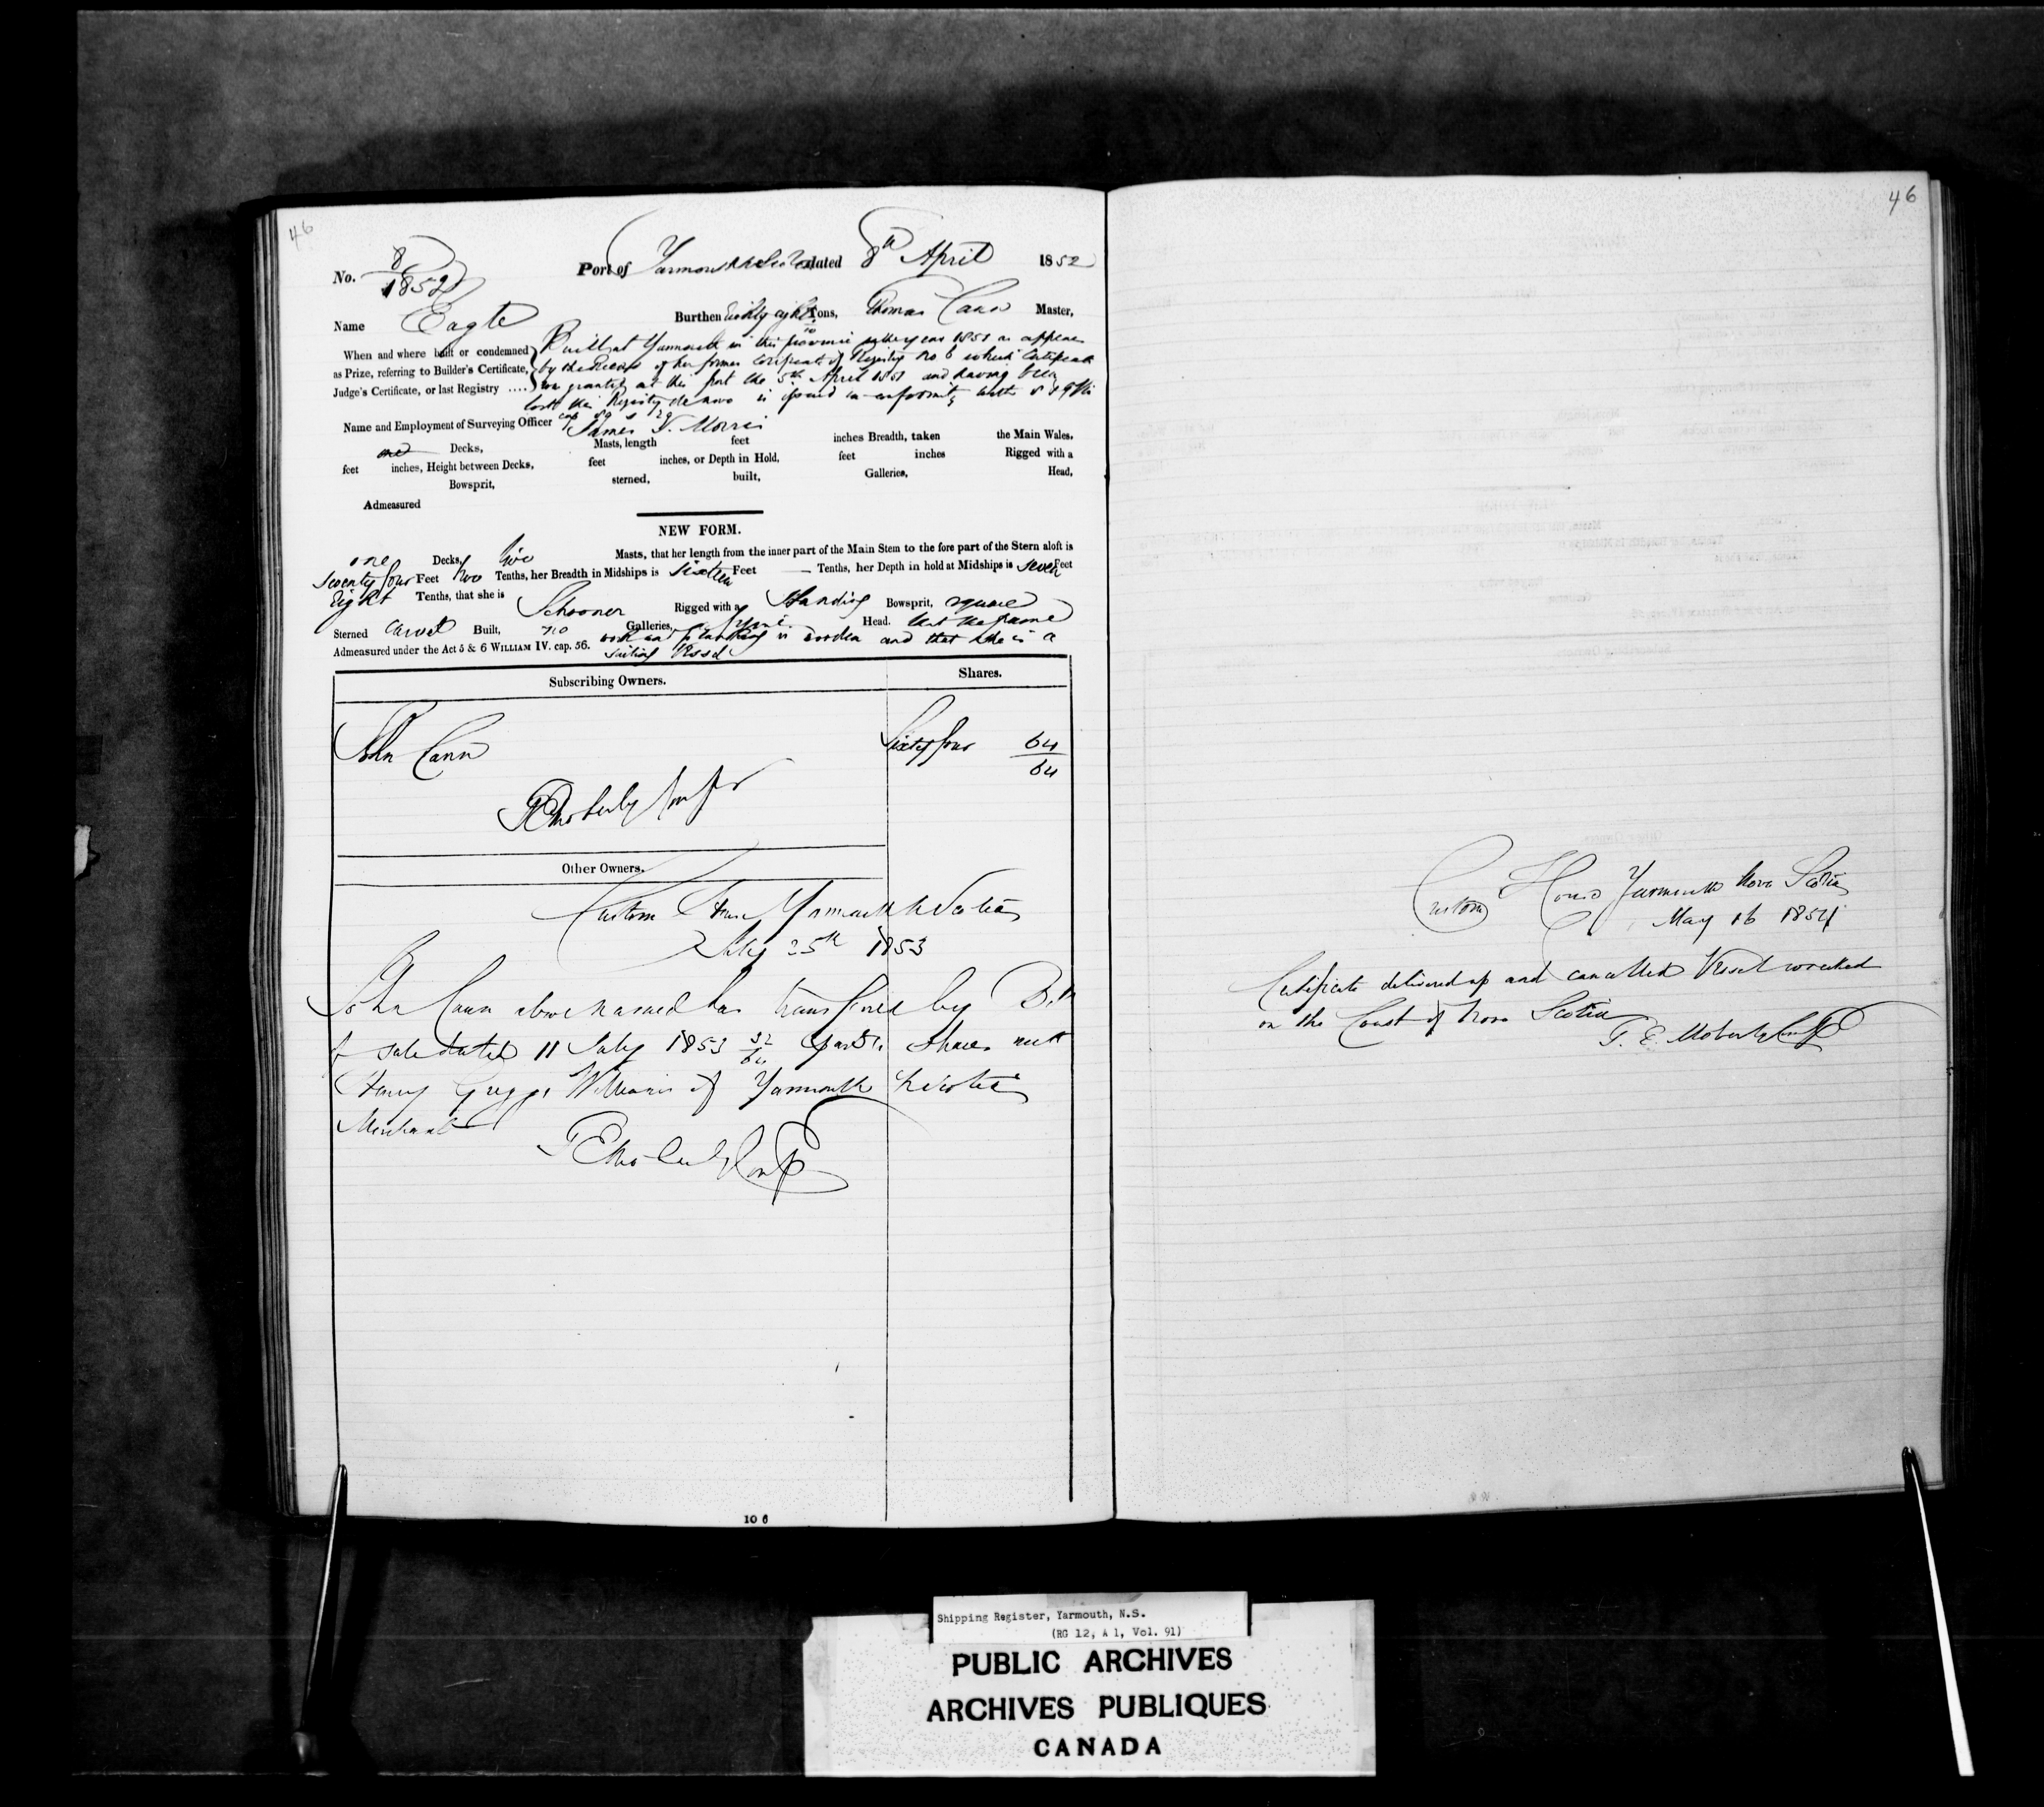 46
No. 8/1852 Port of Yarmouth N Scotia dated 8th April 1852
Name Eagle Burthen Eighty eight Tons, Thomas Cann Master,
When and where built or condemned as Prize, referring to Builder's Certificate, Judge's Certificate, or last Registry ....
Built at Yarmouth in this province in the year 1851 as appears
by the of her former Certificate of Registry No 6 which Certificate
was granted at this port the 5th April 1851 and having been
lost this Registry de novo is issued in conformity with 8 & 9 Vic
cap 89 s 29
Name and Employment of Surveying Officer James J. Morris
one Decks, Masts, length feet inches Breadth, taken the Main Wales,
feet inches, Height between Decks, feet inches, or Depth in Hold, feet inches Rigged with a
Bowsprit, sterned, built, Galleries, Head,
Admeasured
NEW FORM.
one Decks, two Masts, that her length from the inner part of the Main Stem to the fore part of the Stern aloft is
Seventy four Feet two Tenths, her Breadth in Midships is sixteen Feet — Tenths, her Depth in hold at Midships is seven Feet
Eight Tenths, that she is Schooner Rigged with a Standing Bowsprit, square
Sterned Carvel Built, no Galleries, Head. that the frame
Admeasured under the Act 5 & 6 WILLIAM IV. cap. 56. work and planking is wooden and that she is a
sailing Vessel
Subscribing Owners. Shares.
John Cann Sixty four 64/64
T E Moberly Compr
Other Owners.
Custom House Yarmouth N Scotia
July 25th 1853
John Cann above named has transferred by Bill
of sale dated 11 July 1853 32/64 Shares unto
Henry Griggs Williams of Yarmouth N Scotia
Merchant
T E Moberly Compr
10 6
46
Custom House Yarmouth Nova Scotia
May 16 1854
Certificate delivered up and cancelled Vessel wrecked
on the Coast of Nova Scotia
T. E. Moberly Compr
Shipping Register, Yarmouth, N.S.
(RG 12, A 1, Vol. 91)
PUBLIC ARCHIVES
ARCHIVES PUBLIQUES
CANADA